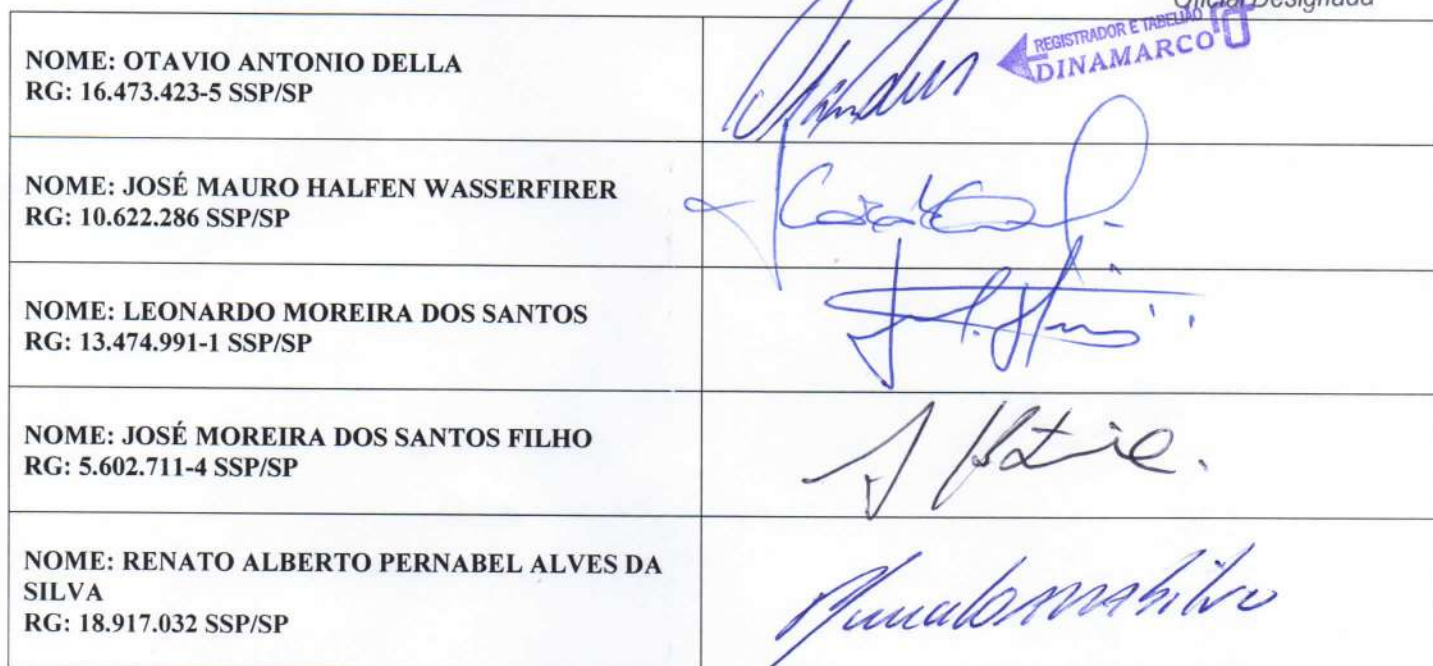 Oficial Designada
REGISTRADOR E TABELIÃO
DINAMARCO
NOME: OTAVIO ANTONIO DELLA
RG: 16.473.423-5 SSP/SP
NOME: JOSÉ MAURO HALFEN WASSERFIRER
RG: 10.622.286 SSP/SP
NOME: LEONARDO MOREIRA DOS SANTOS
RG: 13.474.991-1 SSP/SP
NOME: JOSÉ MOREIRA DOS SANTOS FILHO
RG: 5.602.711-4 SSP/SP
NOME: RENATO ALBERTO PERNABEL ALVES DA
SILVA
RG: 18.917.032 SSP/SP